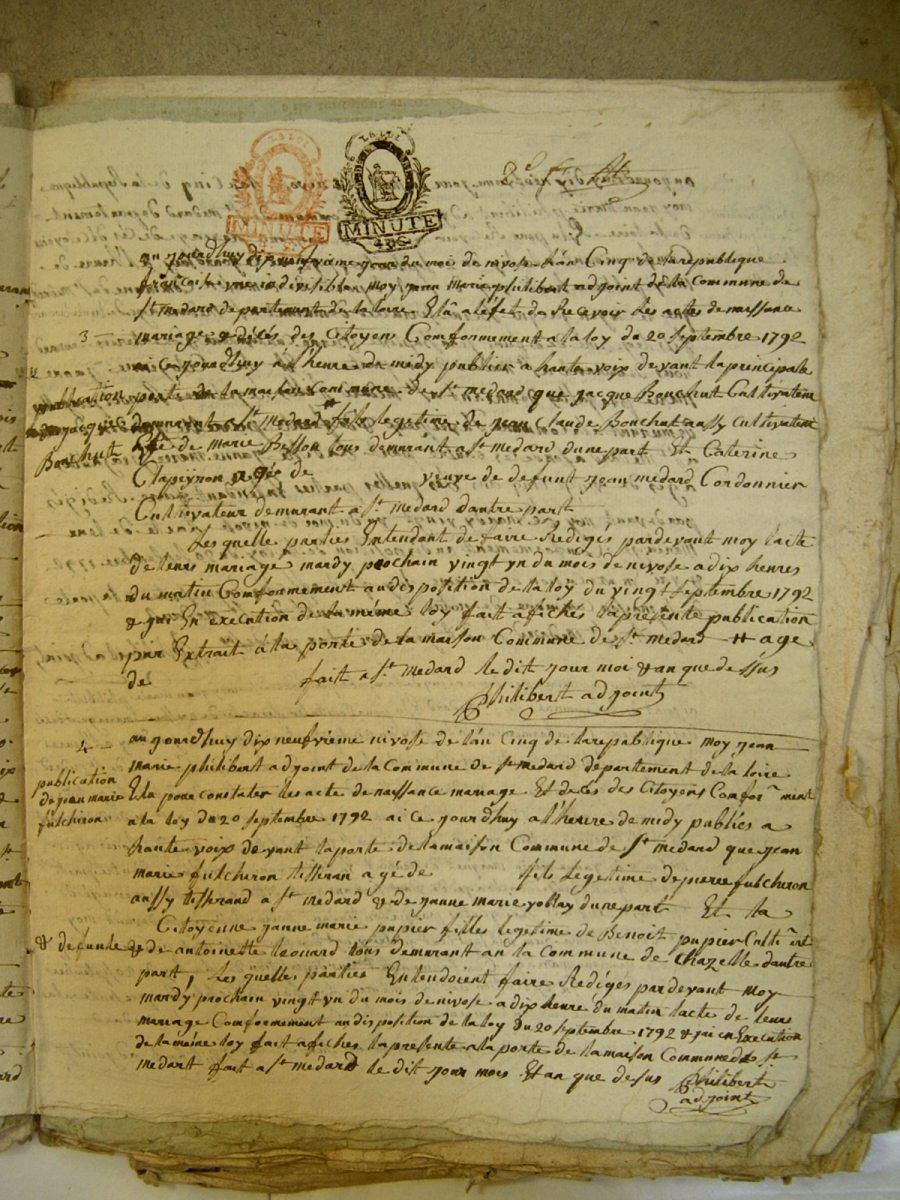 LA LOI
LA LOI
MINUTE
MINUTE
45C
aujourdhuy dix neufvieme jour du mois de nivose l'an Cinq de la republique
francoise une indivisible moy jean marie philibert adjoint de la Commune de
St medard departement de la loire Elu a léfet de Recevoir les actes de naissance
3 mariage & décès des Citoyens Comformement a la loy du 20 septembre 1792
ai ce jourdhuy a l'heure de midy publier a haute voix devant la principale
publication porte de la maison Commune de St medard que jacque Bonchut Cultivateur
de jacque demurant a St medard fils legetime de jean Claude Bonchut aussy cultivateur
Bonchut & de marie Besson tous demurant a St medard dune part Et Caterine
Clapeyron agée de veuve de defunt jean medard Cordonnier
Cultivateur demurant a St medard dautre part
Les quelle parties Entendant de faire Rédigés pardevant moy l'acte
de leurs mariage mardy prochain vingt un du mois de nivose a dix heures
du matin Comformement au disposition de la loy du vingt septembre 1792
& qui En execution de la même loy fait affichés la presente publication
par Extrait a la porte de la maison Commune de St medard & age
de fait a St medard le dit jour moi & an que dessus
Philibert adjoint
4 aujourdhuy dix neufvieme nivose de l'an Cinq de la republique moy jean
marie philibert adjoint de la Commune de St medard departement de la loire
publication
de jean marie
fulchiron
Elu pour constater les acte de naissance mariage Et deces des Citoyens Comformement
a la loy du 20 septembre 1792 ai ce jourdhuy a l'heure de midy publiés a
haute voix devant la porte de la maison Commune de St medard que jean
marie fulchiron tisseran agé de fils legetime de pierre fulchiron
aussy tisserand a St medard & de janne marie dune part Et la
Citoyenne janne marie pupier filles legetime de Benoit pupier Cult
& defunte & de antoinette leonard tous demurant an la Commune de Chazelle dautre
part, Les quelle parties Entendoient faire Redigés pardevant moy
mardy prochain vingt un du mois de nivose a dix heure du matin lacte de leur
mariage Comformement au disposition de la loy du 20 septembre 1792 & jai en Execution
de la même loy fait affiches la presente a la porte de la maison Commune de St
medart fait a St medard le dit jour mois Et an que desus Philibert
adjoint